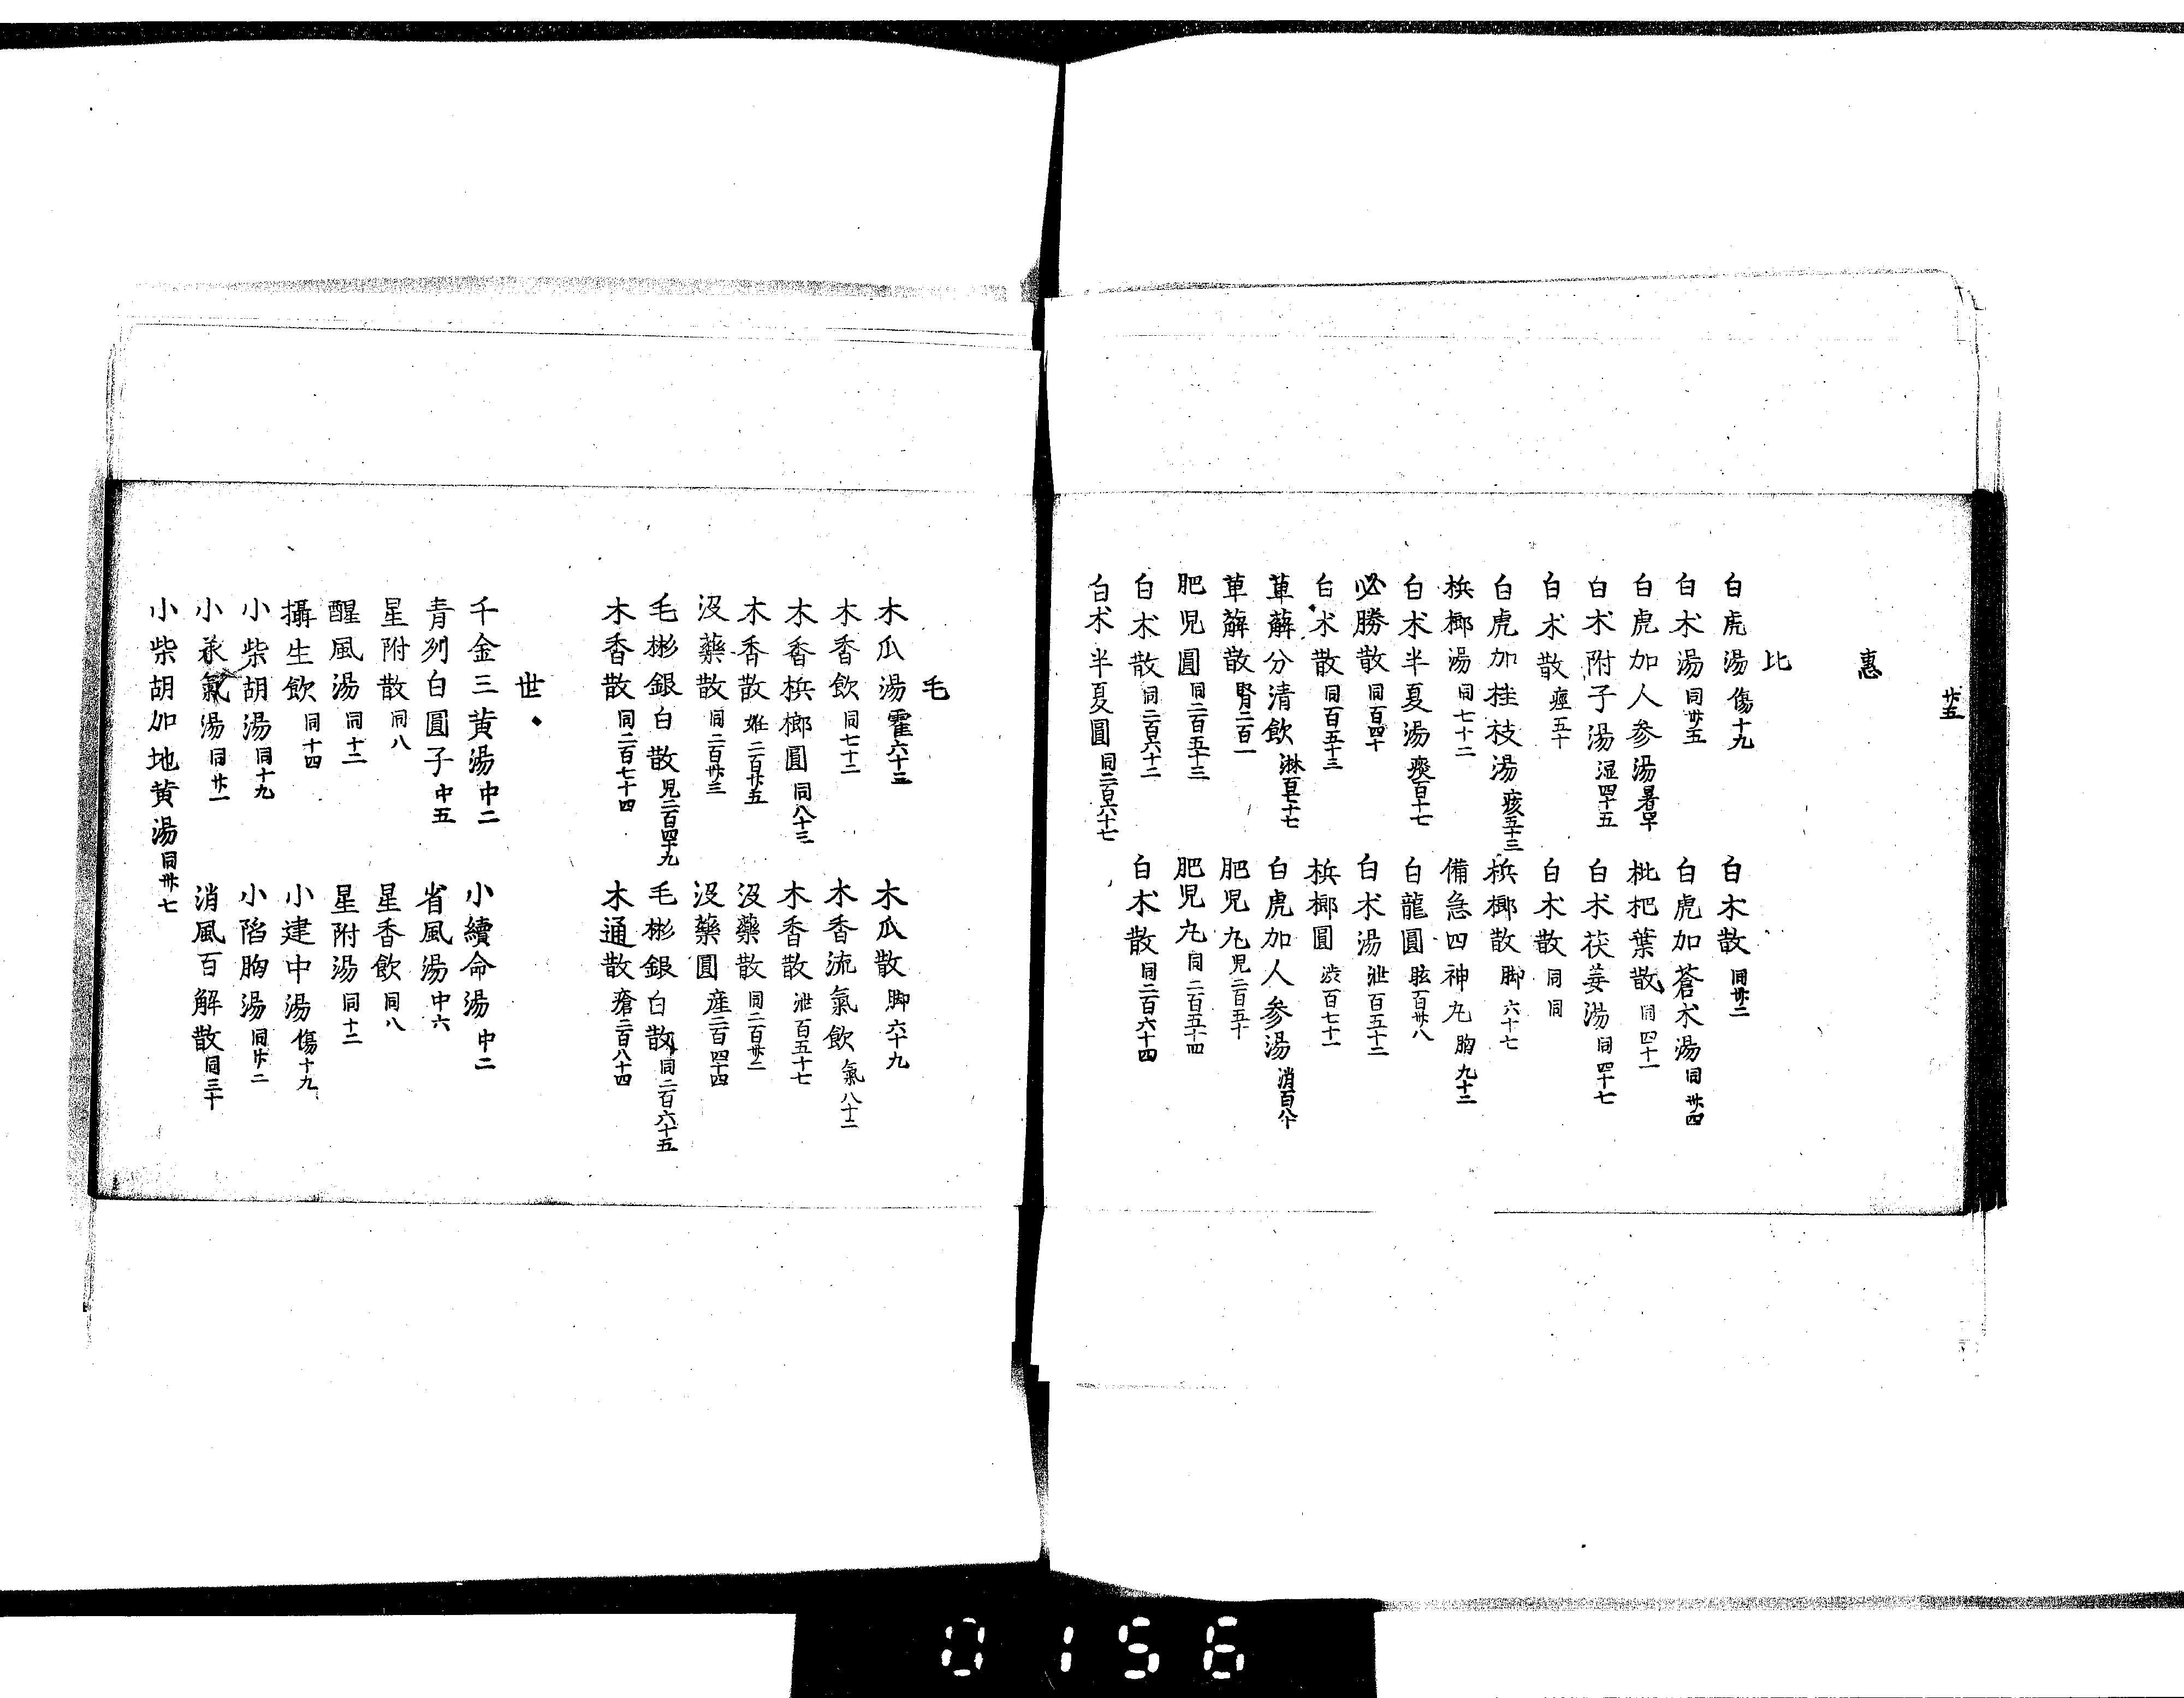 廿五
惠
比
白虎湯 傷十九 白木散 同廿二
白术湯 同廿五 白虎加蒼朮湯 同卅四
白虎加人参湯 暑 枇杷葉散 同四十一
白术附子湯 湿四十五 白术茯姜湯 同四十七
白术散 瘧五十 白木散 同同
白虎加桂枝湯 痎五十三 梹榔散 脚六十七
梹榔湯 同七十二 備急四神丸 胸九十二
白术半夏湯 痰百十七 白龍圓 眩百廿八
必勝散 同百四十 白术湯 泄百五十二
白术散 同百五十三 梹榔圓 百七十一
萆薢分清飲 淋百七十七 白虎加人参湯 消百八十
萆薢散 腎二百一 肥児丸 児二百五十
肥児圓 同二百五十三 肥児丸 同二百五十四
白木散 同二百六十二 白木散 同二百六十四
白术半夏圓 同二百六十七
毛
木瓜湯 霍六十三 木瓜散 脚六十九
木香飲 同七十二 木香流氣飲 氣八十二
木香梹榔圓 同八十三 木香散 泄百五十七
木香散 二百廿五 没藥散 同二百廿二
没藥散 同二百卅三 没藥圓 産二百四十四
毛彬銀白散 児二百四十九 毛彬銀白散 同二百六十五
木香散 同二百七十四 木通散 瘡二百八十四
世
千金三黄湯 中二 小續命湯 中二
青列白圓子 中五 省風湯 中六
星附散 同八 星香飲 同八
醒風湯 同十二 星附湯 同十二
攝生飲 同十四 小建中湯 傷十九
小柴胡湯 同十九 小陷胸湯 同廿二
小承氣湯 同廿一 消風百解散 同三十
小柴胡加地黄湯 同卅七
0156